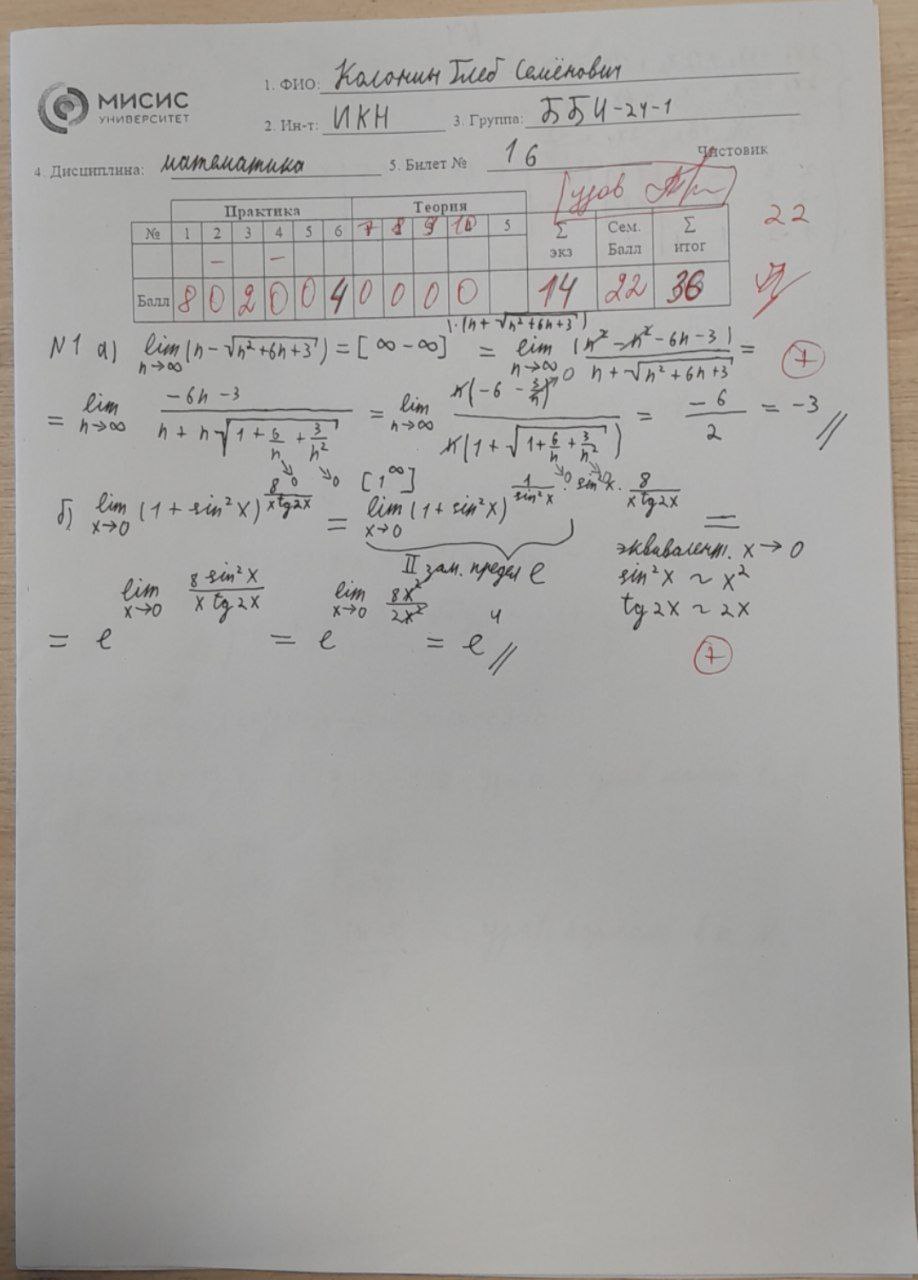 МИСИС
УНИВЕРСИТЕТ
1. ФИО: Колонин Глеб Семёнович
2. Ин-т: ИКН 3. Группа: ББИ-24-1
4. Дисциплина: математика 5. Билет № 16 Чистовик
Практика Теория Σ экз Сем. Балл Σ итог 22
№ 1 2 3 4 5 6 7 8 9 10 5
– –
Балл 8 0 2 0 0 4 0 0 0 0 14 22 36
N1 a) lim n→∞ (n - √(n² + 6n + 3)) = [∞ - ∞] |·(n + √(n² + 6n + 3)) = lim n→∞ (n² - n² - 6n - 3) / (n + √(n² + 6n + 3)) = +
= lim n→∞ (-6n - 3) / (n + n√(1 + 6/n + 3/n²)) = lim n→∞ n(-6 - 3/n) / n(1 + √(1 + 6/n + 3/n²)) = -6/2 = -3 //
б) lim x→0 (1 + sin²x)^(8/(x tg2x)) = [1^∞] lim x→0 (1 + sin²x)^(1/sin²x · sin²x · 8/(x tg2x)) =
II зам. предел e
эквивалент. x → 0
sin²x ~ x²
tg 2x ~ 2x
= e^(lim x→0 8 sin²x / (x tg 2x)) = e^(lim x→0 8x²/2x²) = e^4 //
+